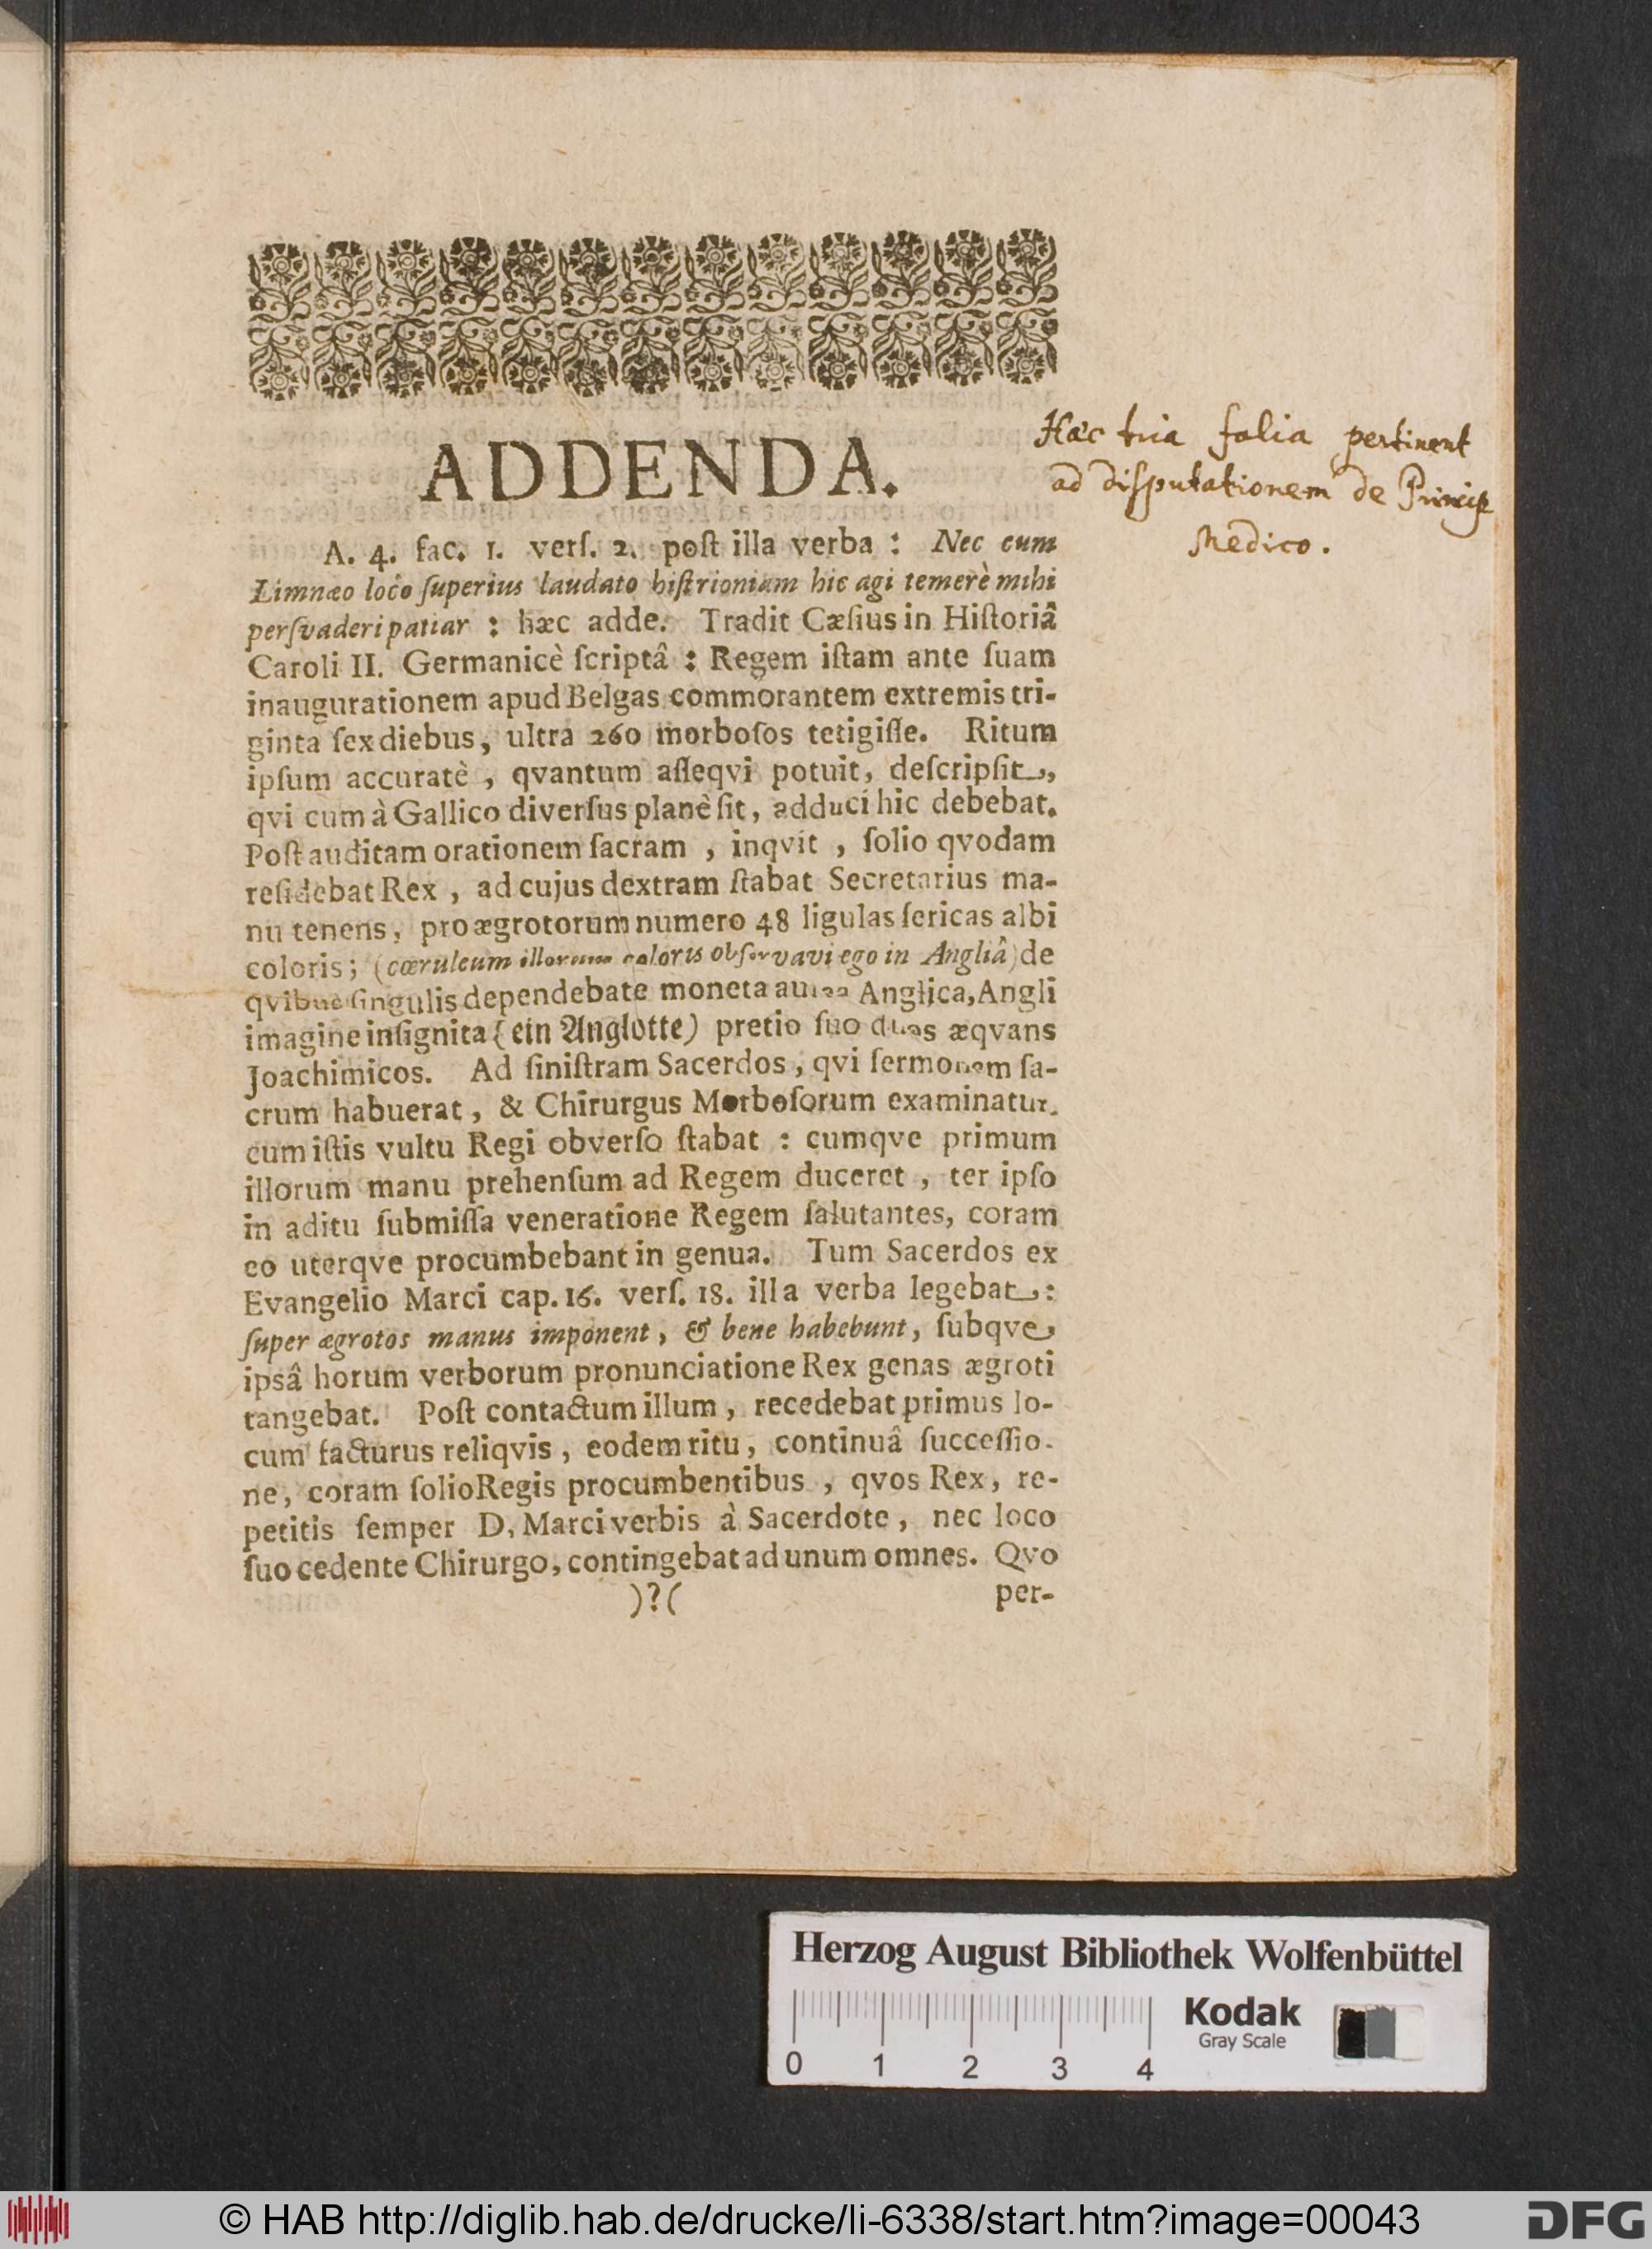 ADDENDA.
Hæc tria folia pertinent
ad disputationem de Princip
Medico.
A. 4. fac. 1. verſ. 2. poſt illa verba : Nec cum
Limnæo loco ſuperius laudato hiſtrioniam hic agi temerè mihi
perſvaderi patiar : hæc adde. Tradit Cæſius in Hiſtoriâ
Caroli II. Germanicè ſcriptâ : Regem iſtam ante ſuam
inaugurationem apud Belgas commorantem extremis tri-
ginta ſex diebus, ultra 260 morboſos tetigiſſe. Ritum
ipſum accuratè , qvantum aſſeqvi potuit, deſcripſit,
qvi cum à Gallico diverſus planè ſit, adduci hic debebat.
Poſt auditam orationem ſacram , inqvit , ſolio qvodam
reſidebat Rex , ad cujus dextram ſtabat Secretarius ma-
nu tenens, pro ægrotorum numero 48 ligulas ſericas albi
coloris; (cœruleum illorum coloris obſervavi ego in Angliâ) de
qvibus ſingulis dependebate moneta aurea Anglica, Angli
imagine inſignita (ein Anglotte) pretio ſuo duos æqvans
Joachimicos. Ad ſiniſtram Sacerdos, qvi ſermonem ſa-
crum habuerat, & Chirurgus Morboſorum examinatur.
cum iſtis vultu Regi obverſo ſtabat : cumqve primum
illorum manu prehenſum ad Regem duceret , ter ipſo
in aditu ſubmiſſa veneratione Regem ſalutantes, coram
eo uterqve procumbebant in genua. Tum Sacerdos ex
Evangelio Marci cap. 16. verſ. 18. illa verba legebat :
ſuper ægrotos manus imponent, & bene habebunt, ſubqve
ipsâ horum verborum pronunciatione Rex genas ægroti
tangebat. Poſt contactum illum, recedebat primus lo-
cum facturus reliqvis, eodem ritu, continuâ ſucceſſio-
ne, coram ſolio Regis procumbentibus , qvos Rex, re-
petitis ſemper D. Marci verbis à Sacerdote, nec loco
ſuo cedente Chirurgo, contingebat ad unum omnes. Qvo
)?( per-
Herzog August Bibliothek Wolfenbüttel
Kodak
Gray Scale
0 1 2 3 4
© HAB http://diglib.hab.de/drucke/li-6338/start.htm?image=00043
DFG